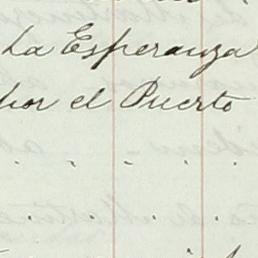 La Esperanza
por el Puerto